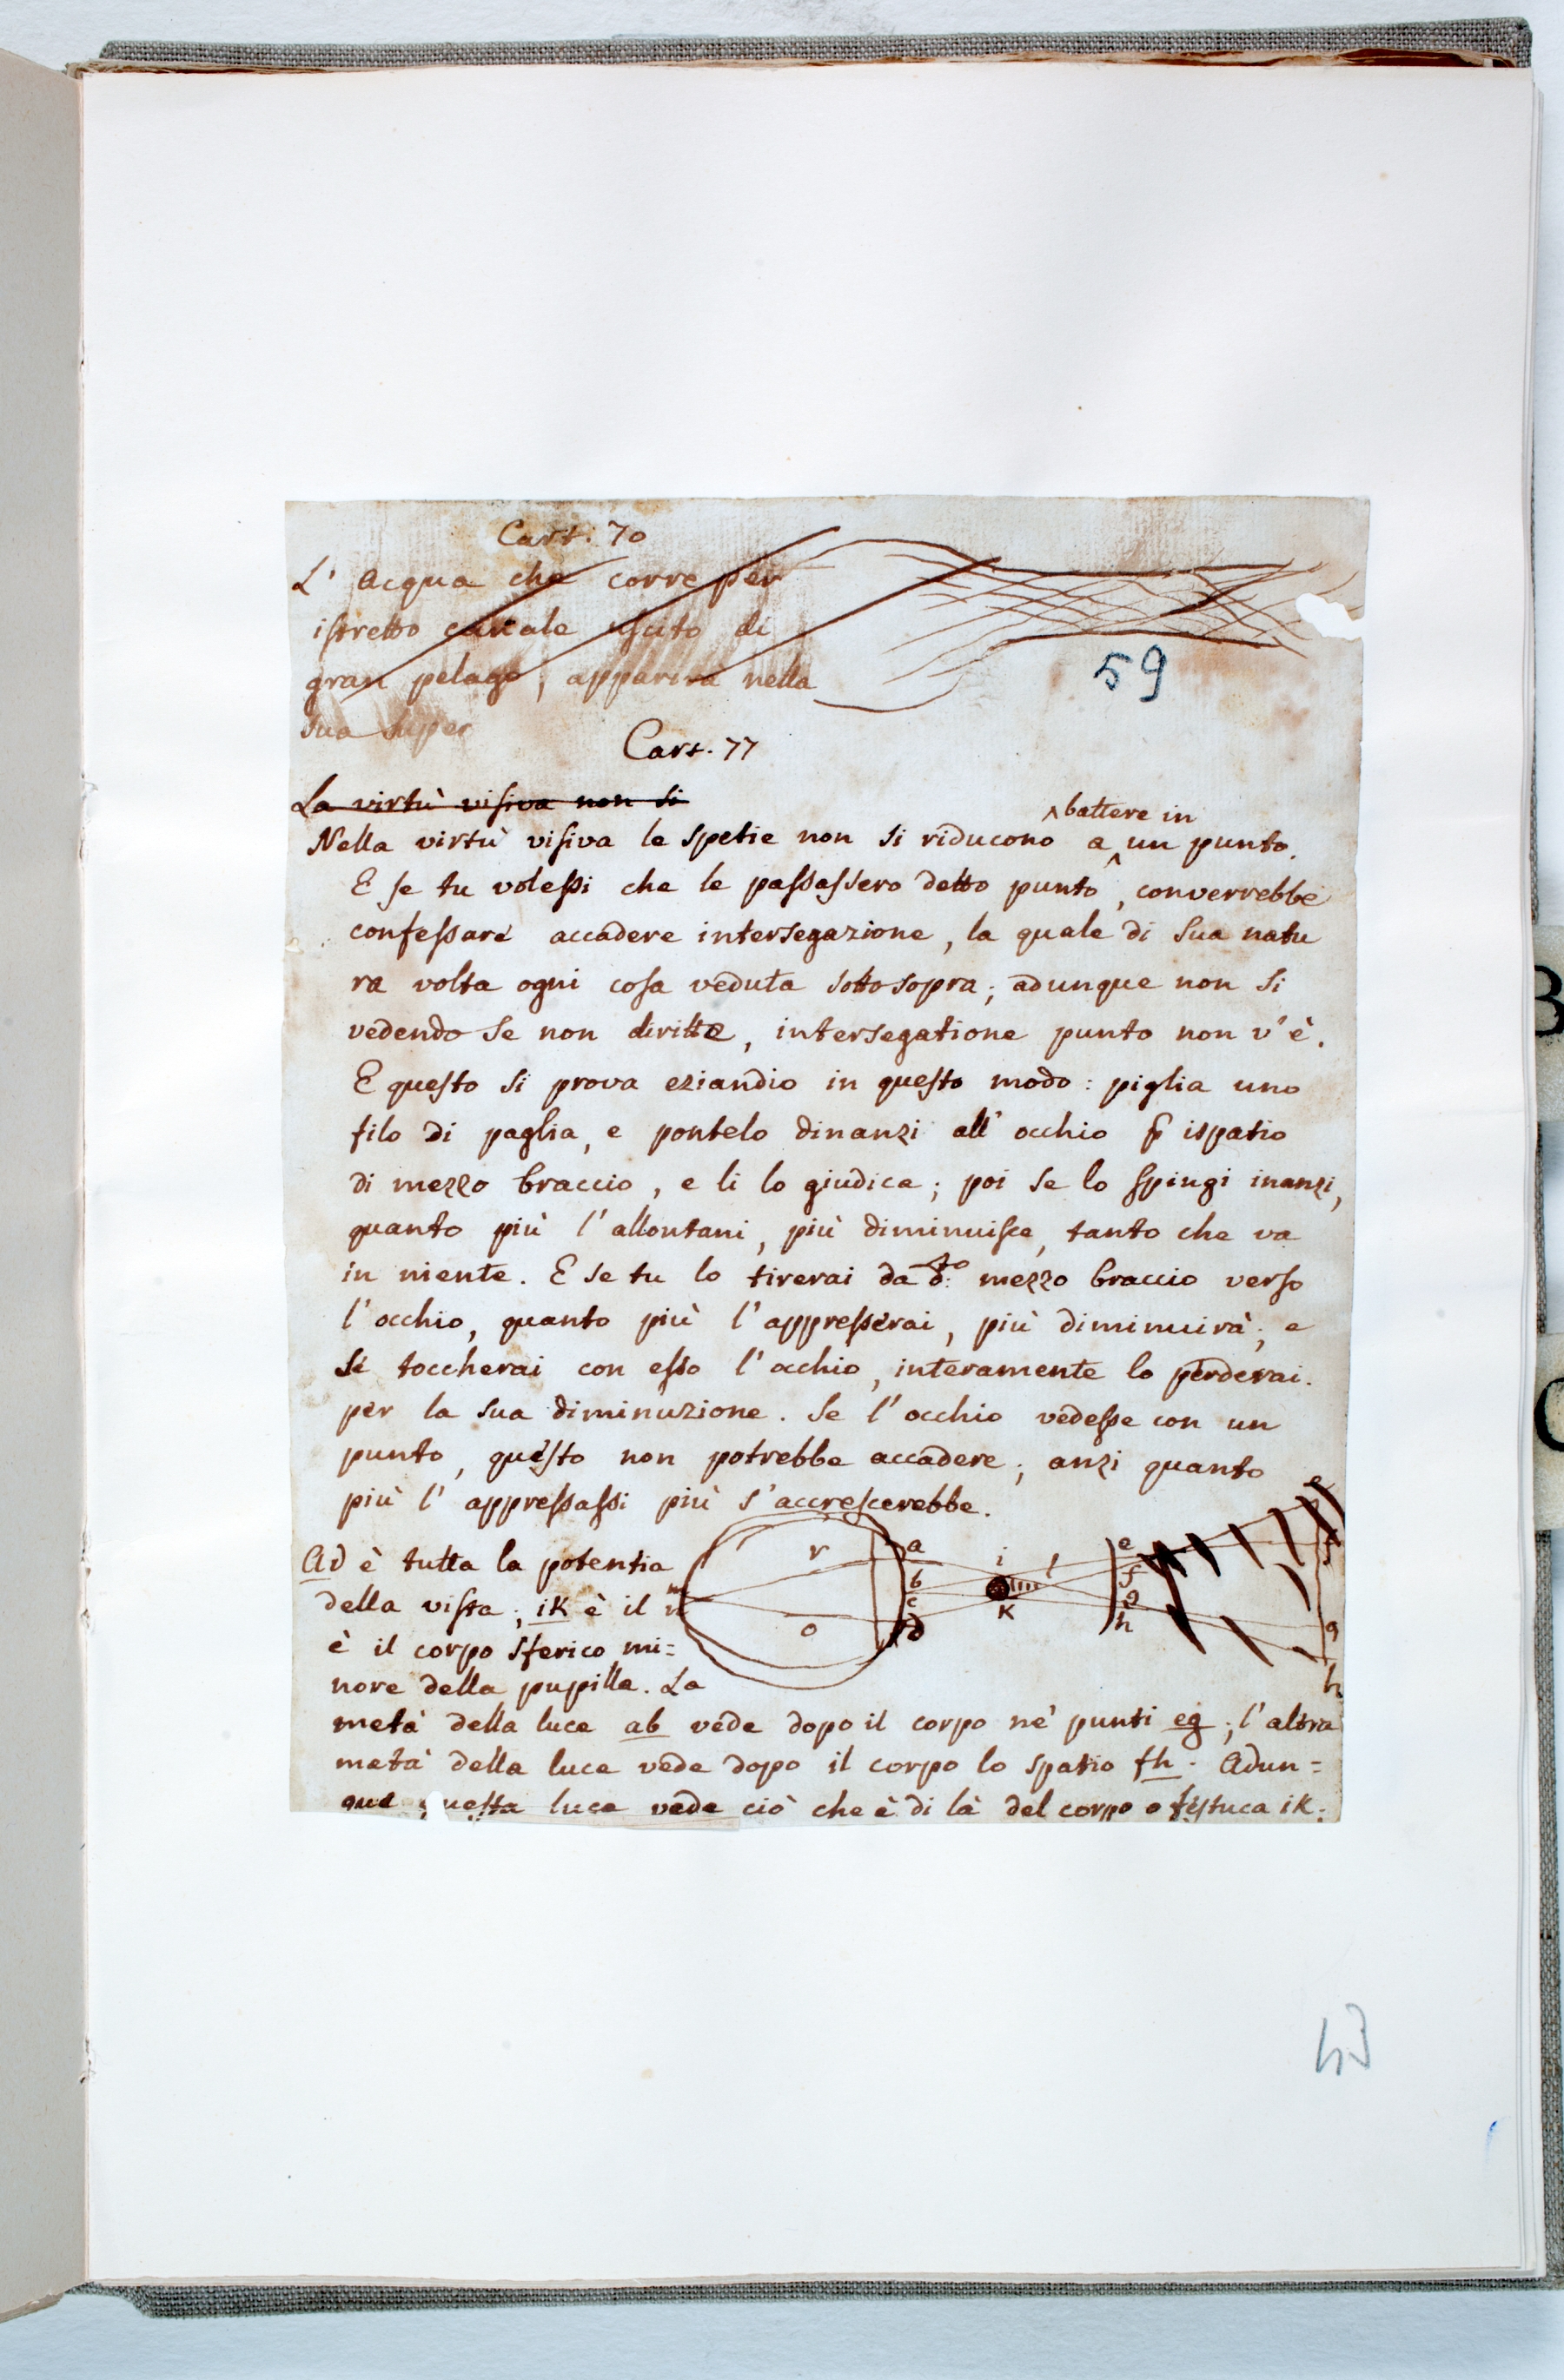 Cart. 70
L' acqua che corre per
istretto canale uscito di
gran pelago, apparirà nella
sua super
59
Cart. 77
La virtù visiva non si
battere in
Nella virtù visiva le spetie non si riducono a un punto.
E se tu volessi che le passassero detto punto, converrebbe
confessare accadere intersegazione, la quale di sua natu
ra volta ogni cosa veduta sottosopra; adunque non si
vedendo se non diritte, intersegatione punto non v'è.
E questo si prova eziandio in questo modo: piglia uno
filo di paglia, e pontelo dinanzi all' occhio p ispatio
di mezzo braccio, e li lo giudica; poi se lo spingi inanzi,
quanto più l'allontani, più diminuisce, tanto che va
in niente. E se tu lo tirerai da d:to mezzo braccio verso
l'occhio, quanto più l'appresserai, più diminuirà; e
se toccherai con esso l'occhio, interamente lo perderai.
per la sua diminuzione. Se l'occhio vedesse con un
punto, questo non potrebbe accadere; anzi quanto
più l'appressassi più s'accrescerebbe.
Ad è tutta la potentia
della vista; iK è il
è il corpo sferico mi=
nore della pupilla. La
r a b c d o i K l e f g h
e f g h
metà della luce ab vede dopo il corpo ne' punti eg; l'altra
metà della luce vede dopo il corpo lo spatio fh. Adun=
que questa luce vede ciò che è di là del corpo o festuca iK.
43